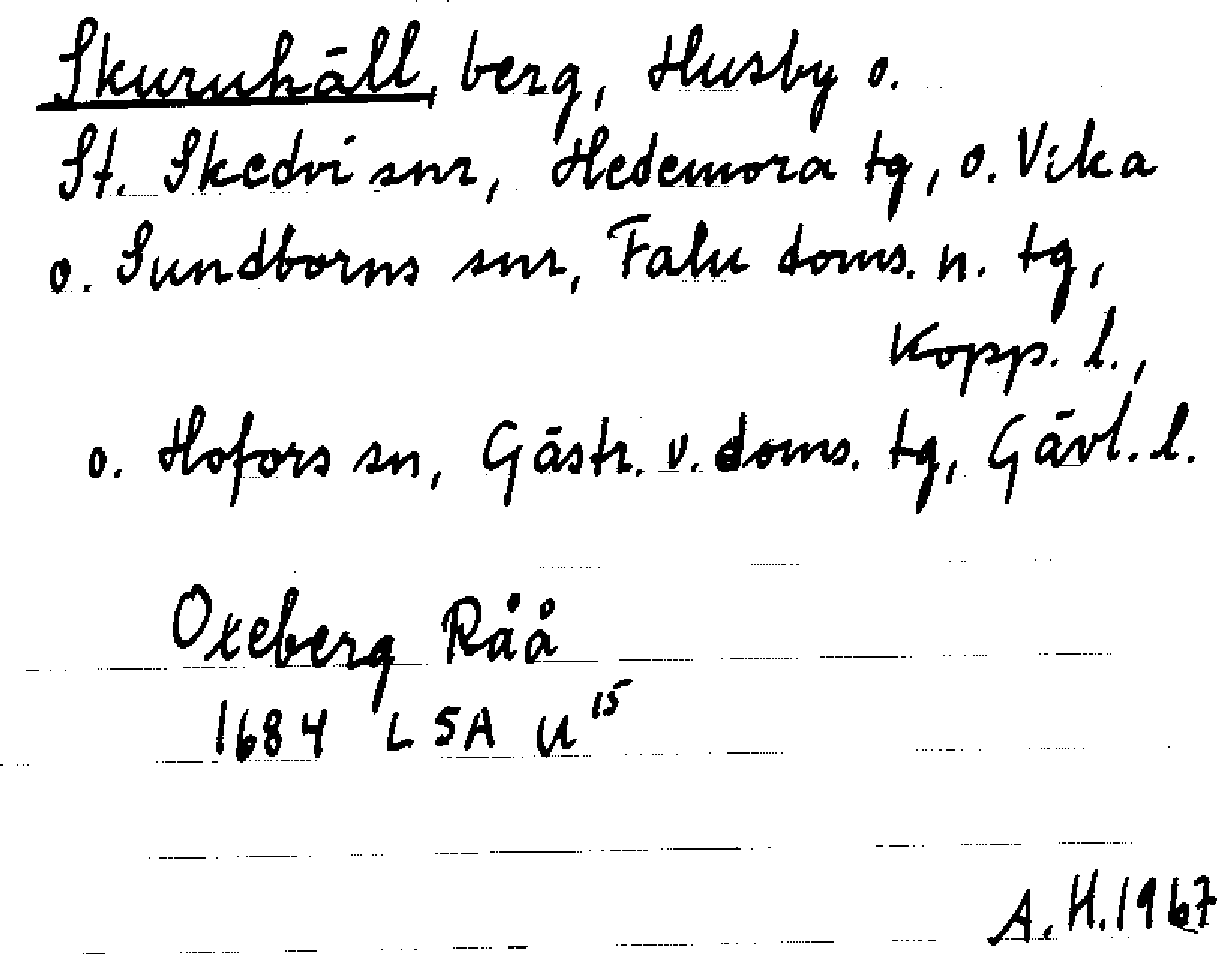 Skuruhäll, berg, Husby o.
St. Skedvi snr, Hedemora tg, o. Vika
o. Sundborns snr, Falu doms. n. tg,
Kopp. l.,
o. Hofors sn, Gästr. v. doms. tg, Gävl. l.
Oxeberg Råå
1684 LSA U 15
A. H. 1967